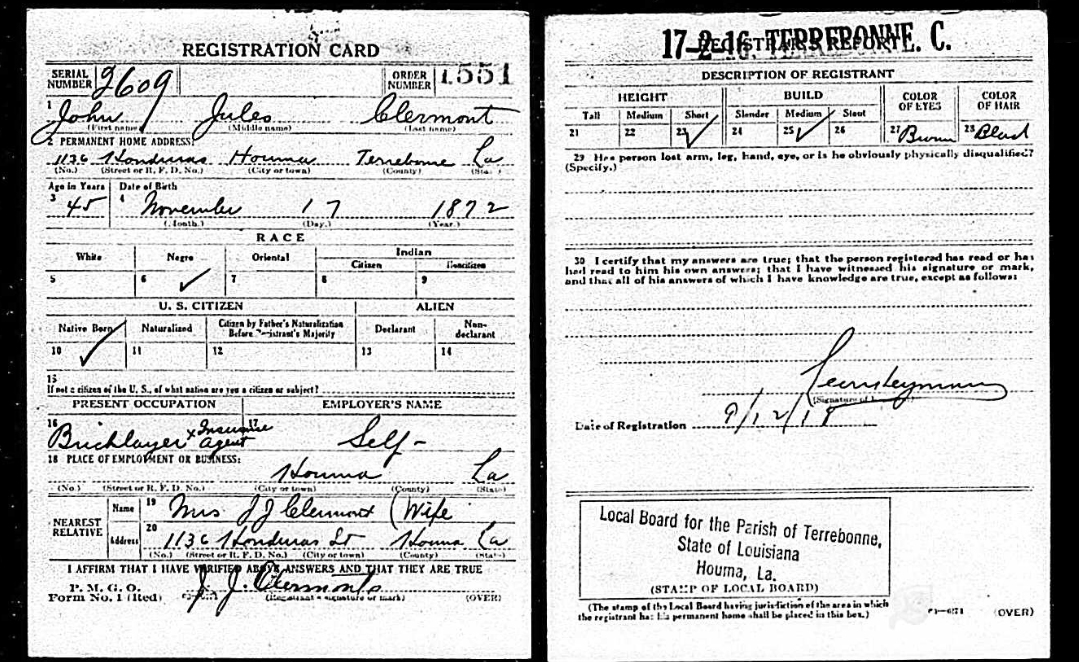 REGISTRATION CARD
SERIAL NUMBER 2609 ORDER NUMBER 1551
1 John Jules Clermont
(First name) (Middle name) (Last name)
2 PERMANENT HOME ADDRESS:
1136 Honduras Houma Terrebonne La
(No.) (Street or R. F. D. No.) (City or town) (County) (State)
Age in Years Date of Birth
3 45 4 November 17 1872
(Month.) (Day.) (Year.)
RACE
White Negro Oriental Indian
Citizen Noncitizen
5 6 ✓ 7 8 9
U. S. CITIZEN ALIEN
Native Born Naturalized Citizen by Father's Naturalization Before Registrant's Majority Declarant Non-declarant
10 ✓ 11 12 13 14
15
If not a citizen of the U. S., of what nation are you a citizen or subject?
PRESENT OCCUPATION EMPLOYER'S NAME
16 Bricklayer x Insurance agent 17 Self-
18 PLACE OF EMPLOYMENT OR BUSINESS:
Houma La
(No.) (Street or R. F. D. No.) (City or town) (County) (State)
NEAREST RELATIVE Name 19 Mrs J J Clermont (Wife
Address 20 1136 Honduras St Houma La
(No.) (Street or R. F. D. No.) (City or town) (County) (State)
I AFFIRM THAT I HAVE VERIFIED ABOVE ANSWERS AND THAT THEY ARE TRUE
P. M. G. O.
Form No. 1 (Red) J. J. Clermont (Registrant's signature or mark) (OVER)
17-2-16. TERREBONNE. C.
REGISTRAR'S REPORT
DESCRIPTION OF REGISTRANT
HEIGHT BUILD COLOR OF EYES COLOR OF HAIR
Tall Medium Short Slender Medium Stout
21 22 23 ✓ 24 25 ✓ 26 27 Brown 28 Black
29 Has person lost arm, leg, hand, eye, or is he obviously physically disqualified?
(Specify.)
30 I certify that my answers are true; that the person registered has read or has
had read to him his own answers; that I have witnessed his signature or mark,
and that all of his answers of which I have knowledge are true, except as follows:
(Signature of
Date of Registration 9/12/18
Local Board for the Parish of Terrebonne,
State of Louisiana
Houma, La.
(STAMP OF LOCAL BOARD)
(The stamp of the Local Board having jurisdiction of the area in which
the registrant has his permanent home shall be placed in this box.)
(OVER)